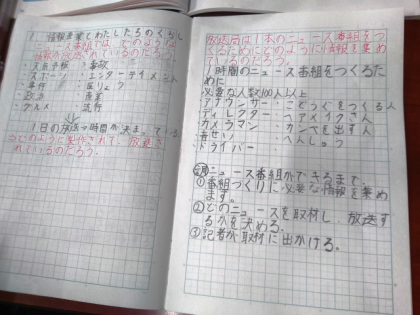 1. 情報産業とわたしたちのくらし
ニュース番組では、どのような
情報が放送されているのだろう。
・天気予報 ・事故
・スポーツ ・エンターテイメント
・事件 ・医りょう
・政治 ・産業
・グルメ ・流行
↓
1日の放送の時間が決まっている
のだろう。
放送局は1本のニュース番組をつ
くるためにどのように情報を集め
ているのだろう。
1時間のニュース番組をつくるた
めに
必要な人数100人以上
アナウンサー
・ディレクター ・ヘアメイクさん
・カメラマン ・カンペを出す人
・音せい ・へんしゅう
・ドライバー
ニュース番組ができるまで、
①番組づくりに必要な情報を集め
ます。
②どのニュースを取材し、放送す
るかを決める。
③記者が取材に出かける。